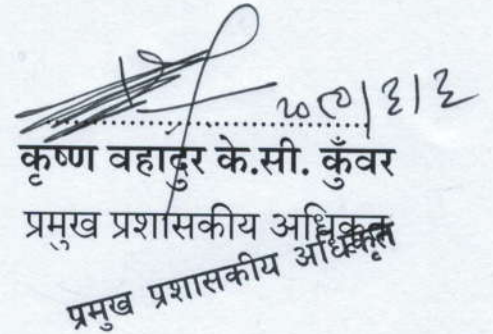 कृष्ण वहादुर के.सी. कुँवर
प्रमुख प्रशासकीय अधिकृत
प्रमुख प्रशासकीय अधिकृत